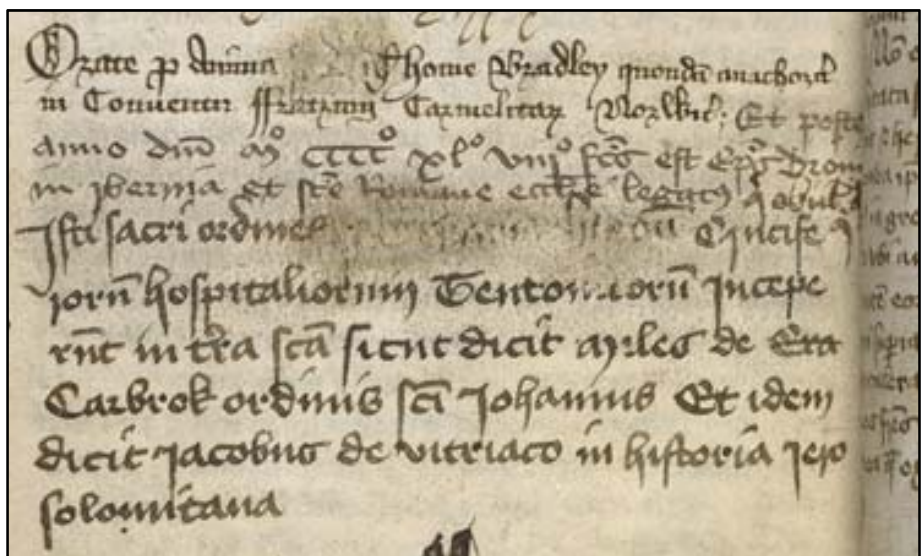 Orate p anima Thome Bradley quondā anachorit
in Conventu ffratrum Carmelitar Norwic: Et poste
anno dm̄ Mº ccccº xlº viijº fcs est Eps Drom
in ibernia et sce Romane ecclie legatꝰ q obijt
Isti sacri ordines Crucife
iorū hospitaliorum Teutonicorū incepe
rūt in tr̄a scā sicut dicit myles de
Carbrok ordinis sc̄i Johannis Et idem
dicit Jacobus de vitriaco in historia iero
solomitana